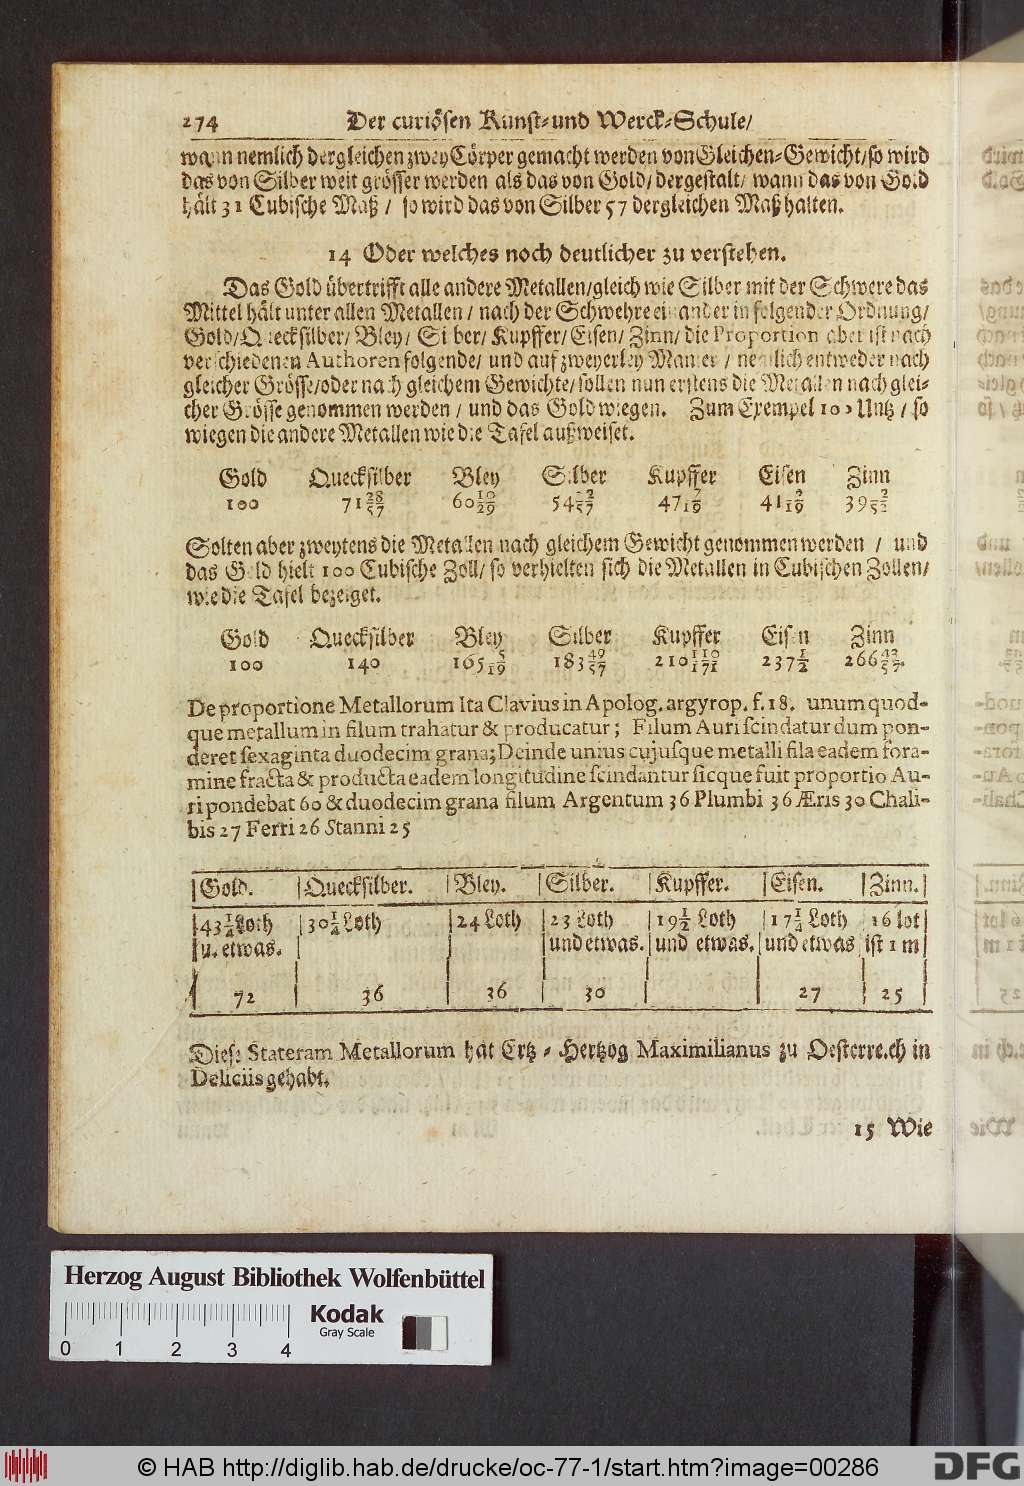 274 Der curiösen Kunst- und Werck-Schule/
wann nemlich dergleichen zwey Cörper gemacht werden von Gleichen-Gewicht/ so wird
das von Silber weit grösser werden als das von Gold/ dergestalt/ wann das von Gold
hält 31 Cubische Maß / so wird das von Silber 57 dergleichen Maß halten.
14 Oder welches noch deutlicher zu verstehen.
Das Gold übertrifft alle andere Metallen/ gleich wie Silber mit der Schwere das
Mittel hält unter allen Metallen / nach der Schwehre einander in folgender Ordnung/
Gold/ Quecksilber/ Bley/ Silber/ Kupffer/ Eisen/ Zinn/ die Proportion aber ist nach
verschiedenen Authoren folgende/ und auf zweyerley Manier / nemlich entweder nach
gleicher Grösse/ oder nach gleichem Gewichte/ sollen nun erstens die Metallen nach glei-
cher Grösse genommen werden / und das Gold wiegen. Zum Exempel 100 Untz / so
wiegen die andere Metallen wie die Tafel außweiset.
Gold Quecksilber Bley Silber Kupffer Eisen Zinn
100 71 28/57 60 10/29 54 2/57 47 7/19 41 2/19 39 2/52
Solten aber zweytens die Metallen nach gleichem Gewicht genommen werden / und
das Gold hielt 100 Cubische Zoll/ so verhielten sich die Metallen in Cubischen Zollen/
wie die Tafel bezeiget.
Gold Quecksilber Bley Silber Kupffer Eisen Zinn
100 140 165 5/19 183 49/57 210 110/171 237 1/2 266 42/57.
De proportione Metallorum Ita Clavius in Apolog. argyrop. f. 18. unum quod-
que metallum in filum trahatur & producatur; Filum Auri scindatur dum pon-
deret sexaginta duodecim grana; Deinde unius cujusque metalli fila eadem fora-
mine fracta & producta eadem longitudine scindantur sicque fuit proportio Au-
ri pondebat 60 & duodecim grana filum Argentum 36 Plumbi 36 Æris 30 Chali-
bis 27 Ferri 26 Stanni 25
Gold. Quecksilber. Bley. Silber. Kupffer. Eisen. Zinn.
43 1/4 Loth 30 1/4 Loth 24 Loth 23 Loth 19 1/2 Loth 17 1/4 Loth 16 lot
u. etwas. und etwas. und etwas. und etwas ist 1 m
72 36 36 30 27 25
Diese Stateram Metallorum hat Ertz-Hertzog Maximilianus zu Oesterreich in
Deliciis gehabt.
15 Wie
Herzog August Bibliothek Wolfenbüttel
Kodak
Gray Scale
0 1 2 3 4
© HAB http://diglib.hab.de/drucke/oc-77-1/start.htm?image=00286
DFG